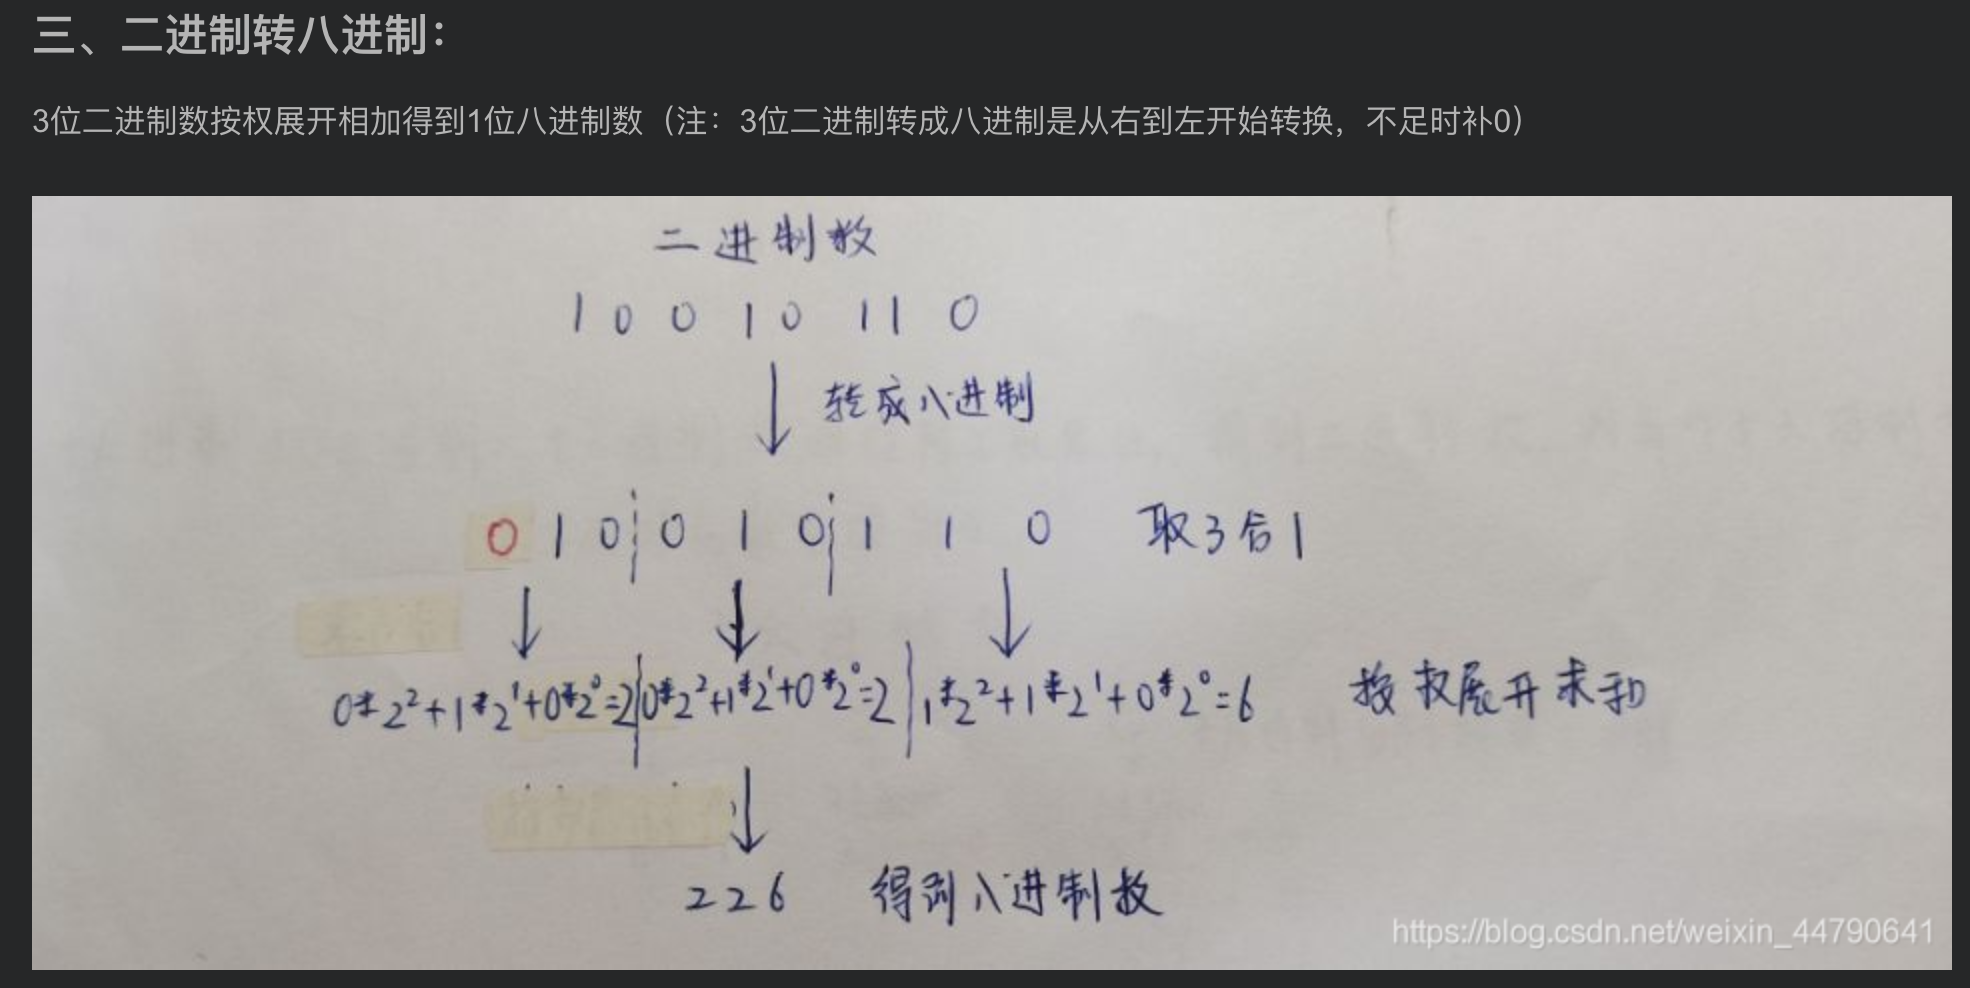 三、二进制转八进制：
3位二进制数按权展开相加得到1位八进制数（注：3位二进制转成八进制是从右到左开始转换，不足时补0）
二进制数
1 0 0 1 0 1 1 0
转成八进制
0 1 0 0 1 0 1 1 0 取3合1
0*2²+1*2¹+0*2⁰=2 0*2²+1*2¹+0*2⁰=2 1*2²+1*2¹+0*2⁰=6 按权展开求和
226 得到八进制数
https://blog.csdn.net/weixin_44790641